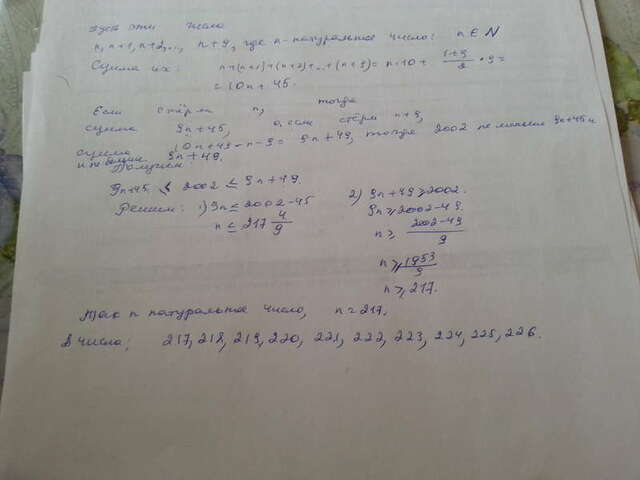 Пусть эти числа
n, n+1, n+2, ..., n+9, где n - натуральное число: n ∈ N
Сумма их: n+(n+1)+(n+2)+...+(n+9) = n·10 + (1+9)/2 · 9 =
= 10n + 45.
Если стёрли n, тогда
сумма 9n+45, а если стёрли n+9,
сумма 10n+45-n-9 = 9n+49, тогда 2002 не меньше 9n+45 и
и не больше 9n+49.
Получим:
9n+45 ≤ 2002 ≤ 9n+49.
Решим: 1) 9n ≤ 2002-45
n ≤ 217 4/9
2) 9n+49 ≥ 2002.
9n ≥ 2002-49.
n ≥ (2002-49)/9
n ≥ 1953/9
n ≥ 217.
Так n натуральное число, n = 217,
А числа: 217, 218, 219, 220, 221, 222, 223, 224, 225, 226.